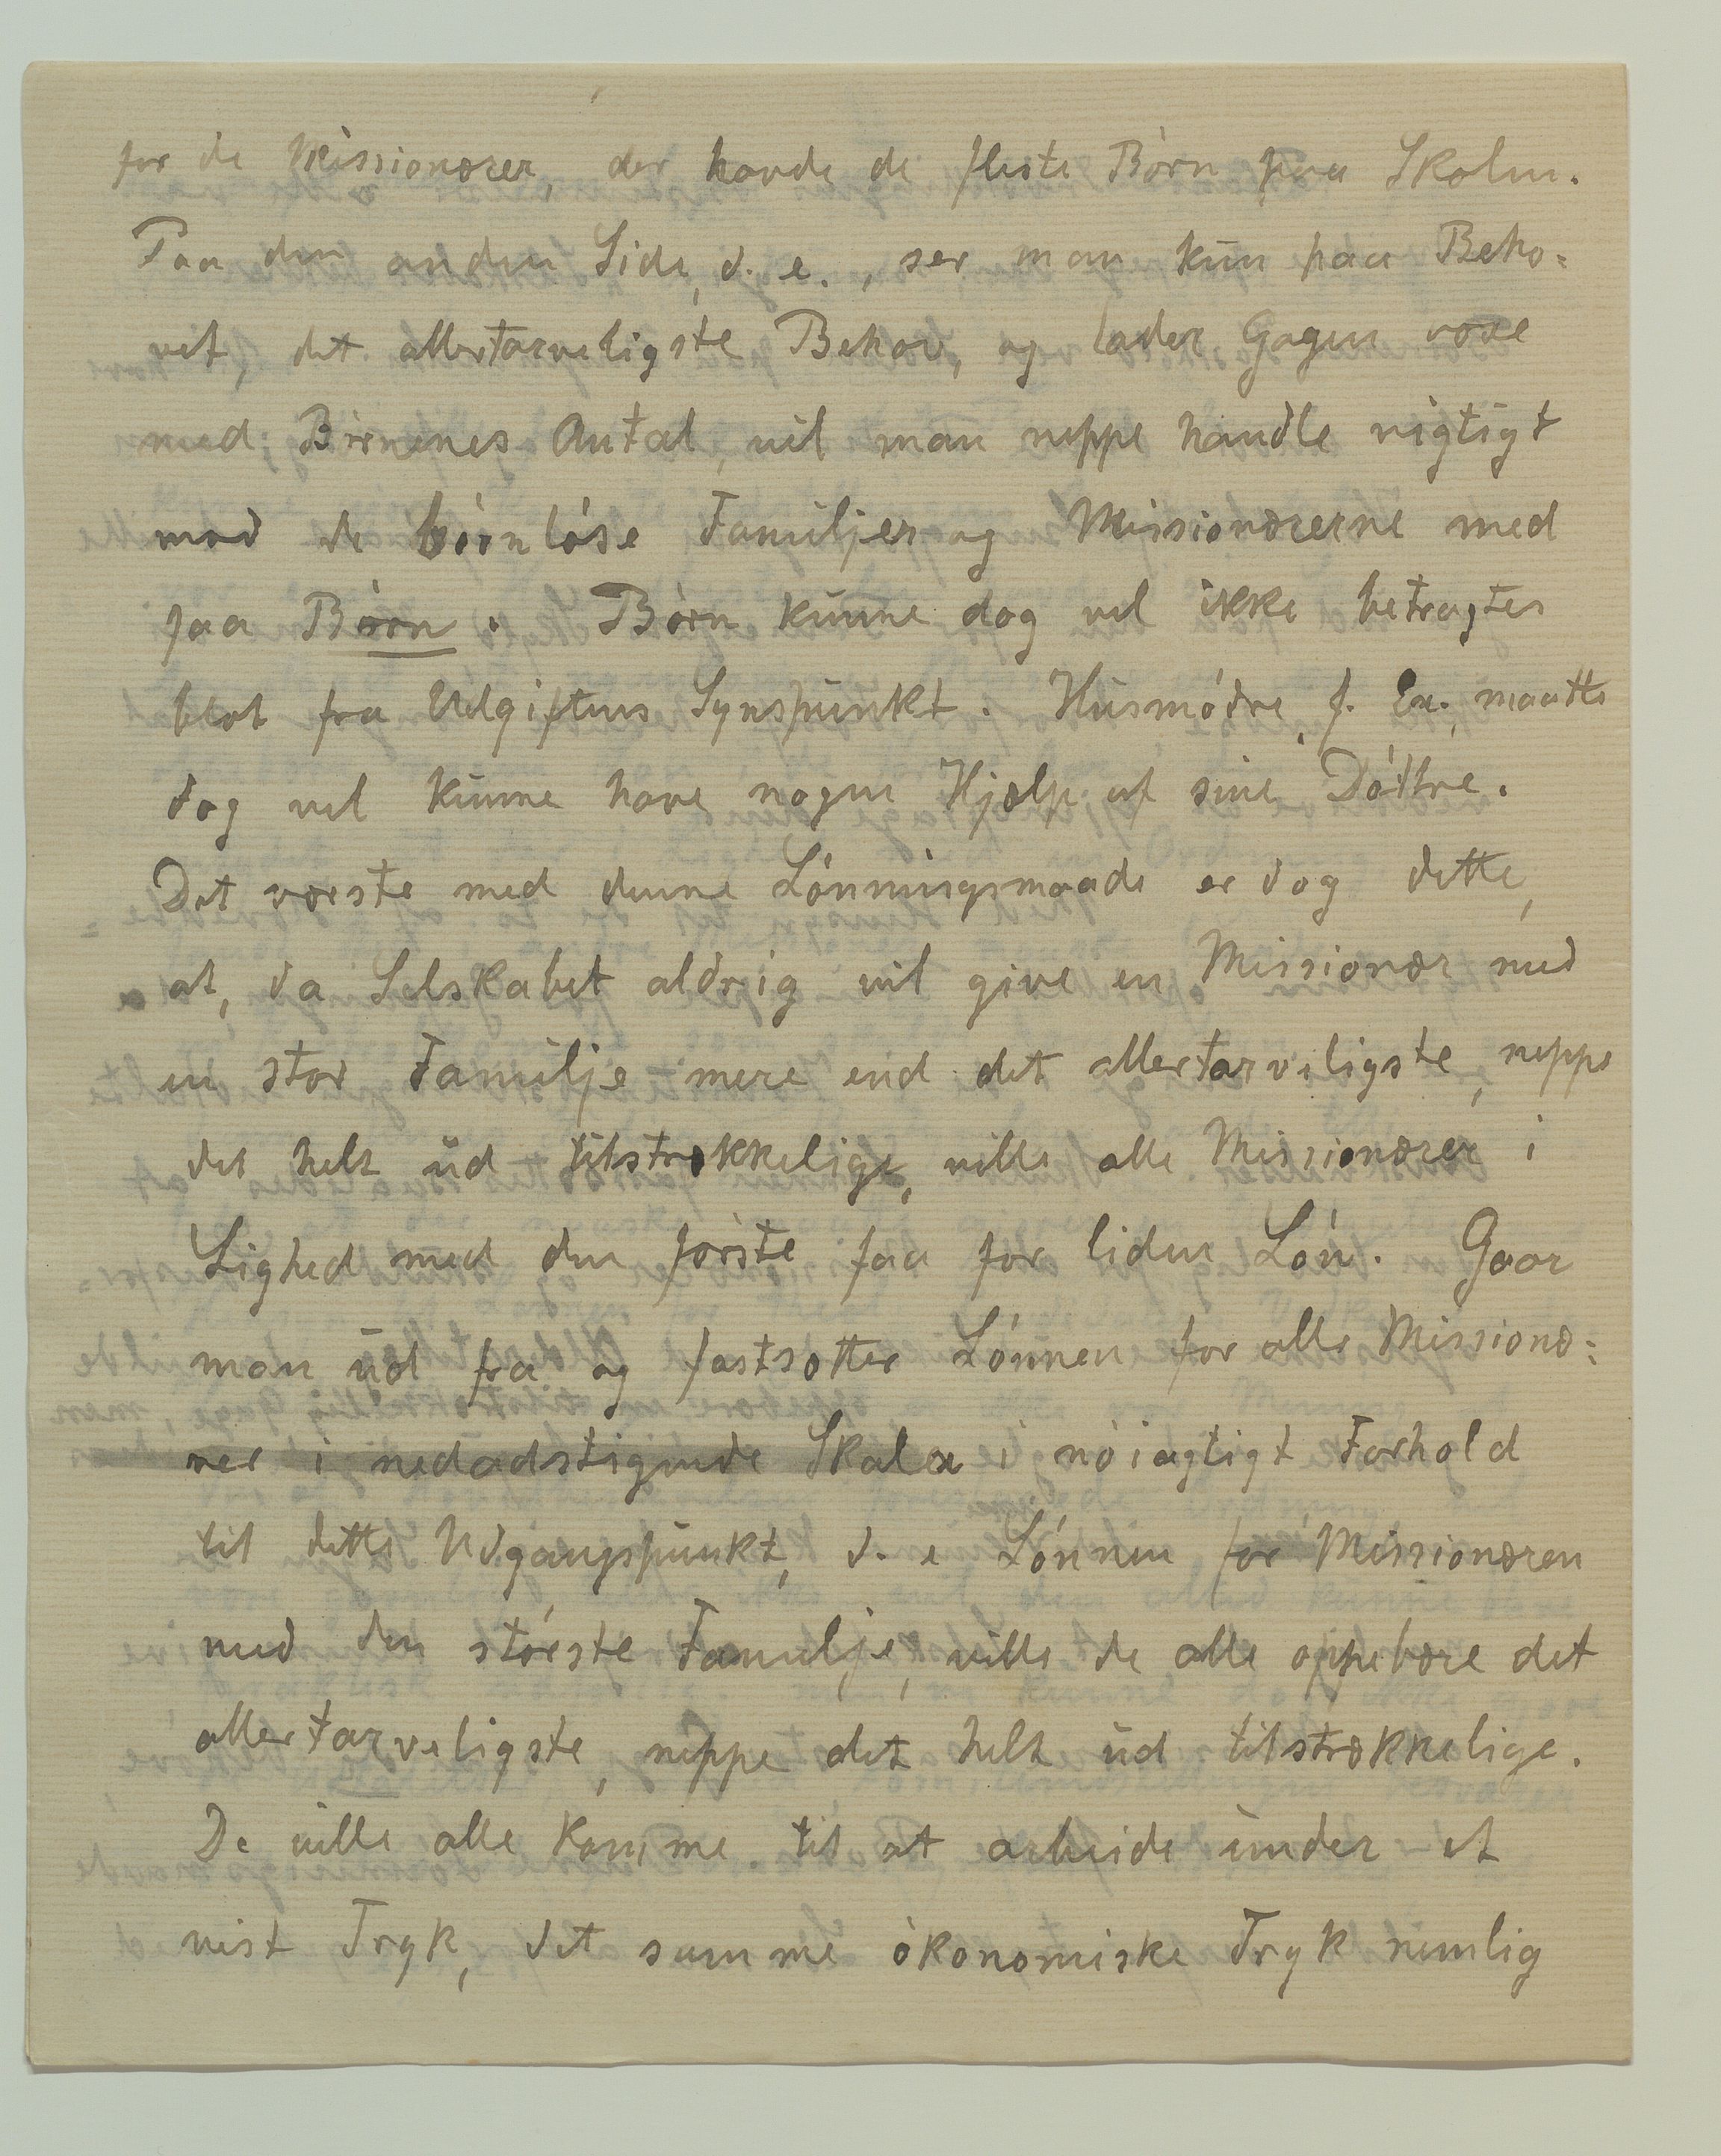 for de Missionærer, der havde de fleste Børn paa Skolen.
Paa den anden Side, d. e., ser man kun paa Beho=
vet, det allertarveligste Behov, og lader Gagen voxe
med Børnenes Antal, vil man neppe handle rigtigt
mod de børnløse Familjer og Missionærerne med
faa Børn. Børn kunne dog vel ikke betragtes
blot fra Udgiftens Synspunkt. Husmødre, f. Ex., maatte
dog vel kunne have nogen Hjælp af sine Døttre.
Det værste med denne Lønningsmaade er dog dette,
at, da Selskabet aldrig vil give en Missionær med
en stor Familje mere end det allertarveligste, neppe
det helt ud tilstrækkelige, ville alle Missionærer i
Lighed med den første faa for liden Løn. Gaar
man ud fra og fastsætter Lønnen for alle Missionæ=
rer i nedadstigende Skala i nøiagtigt Forhold
til dette Udgangspunkt, d. e Lønnen for Missionæren
med den største Familje, ville de alle oppebære det
allertarveligste, neppe det helt ud tilstrækkelige.
De ville alle komme til at arbeide under et
vist Tryk, det samme økonomiske Tryk nemlig